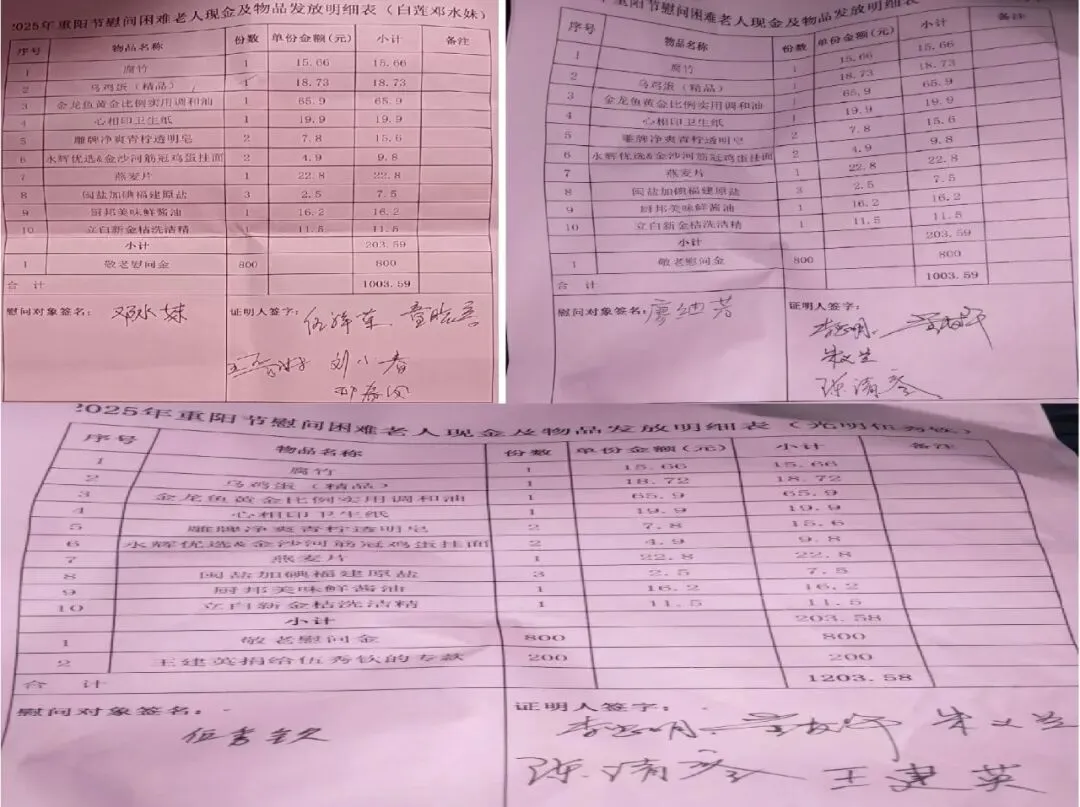 2025年重阳节慰问困难老人现金及物品发放明细表（白莲邓水妹）
序号 物品名称 份数 单份金额(元) 小计 备注
1 腐竹 1 15.66 15.66
2 乌鸡蛋（精品） 1 18.73 18.73
3 金龙鱼黄金比例实用调和油 1 65.9 65.9
4 心相印卫生纸 1 19.9 19.9
5 雕牌净爽青柠透明皂 2 7.8 15.6
6 永辉优选&金沙河筋冠鸡蛋挂面 2 4.9 9.8
7 燕麦片 1 22.8 22.8
8 闽盐加碘福建原盐 3 2.5 7.5
9 厨邦美味鲜酱油 1 16.2 16.2
10 立白新金桔洗洁精 1 11.5 11.5
小计 203.59
1 敬老慰问金 800 800
合 计 1003.59
慰问对象签名： 邓水妹 证明人签字：
刘小春
年重阳节慰问困难老人现金及物品发放明细表
序号 物品名称 份数 单份金额(元) 小计 备注
1 腐竹 1 15.66 15.66
2 乌鸡蛋（精品） 1 18.73 18.73
3 金龙鱼黄金比例实用调和油 1 65.9 65.9
4 心相印卫生纸 1 19.9 19.9
5 雕牌净爽青柠透明皂 2 7.8 15.6
6 永辉优选&金沙河筋冠鸡蛋挂面 2 4.9 9.8
7 燕麦片 1 22.8 22.8
8 闽盐加碘福建原盐 3 2.5 7.5
9 厨邦美味鲜酱油 1 16.2 16.2
10 立白新金桔洗洁精 1 11.5 11.5
小计 203.59
1 敬老慰问金 800 800
合 计 1003.59
慰问对象签名： 证明人签字：
朱义生
陈清
2025年重阳节慰问困难老人现金及物品发放明细表（光明伍秀钦）
序号 物品名称 份数 单份金额(元) 小计 备注
1 腐竹 1 15.66 15.66
2 乌鸡蛋（精品） 1 18.72 18.72
3 金龙鱼黄金比例实用调和油 1 65.9 65.9
4 心相印卫生纸 1 19.9 19.9
5 雕牌净爽青柠透明皂 2 7.8 15.6
6 永辉优选&金沙河筋冠鸡蛋挂面 2 4.9 9.8
7 燕麦片 1 22.8 22.8
8 闽盐加碘福建原盐 3 2.5 7.5
9 厨邦美味鲜酱油 1 16.2 16.2
10 立白新金桔洗洁精 1 11.5 11.5
小计 203.58
1 敬老慰问金 800 800
2 王建英捐给伍秀钦的专款 200 200
合 计 1203.58
慰问对象签名： 证明人签字：
伍秀钦 朱义生
陈清 王建英